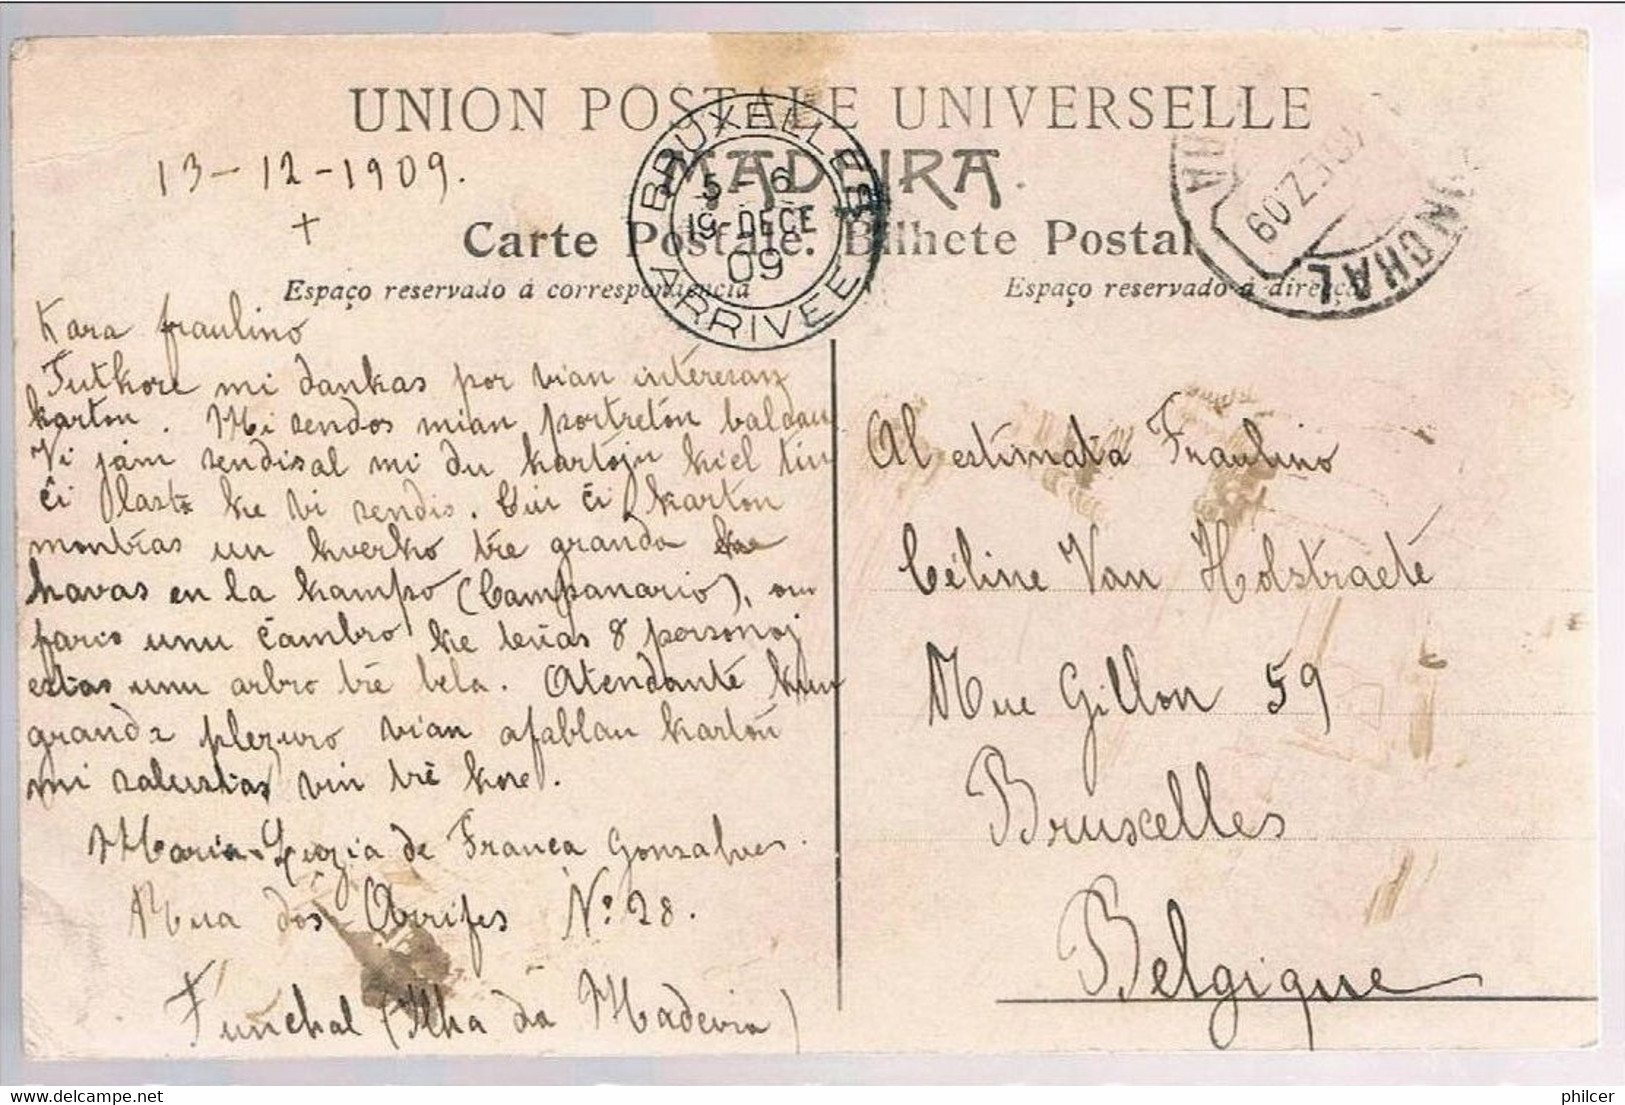 UNION POSTALE UNIVERSELLE
MADEIRA.
Carte Postale. Bilhete Postal
Espaço reservado á correspondencia
Espaço reservado á direcção
BRUXELLES
5-6
19-DECE
09
ARRIVEE
FUNCHAL
DEZ.09
13-12-1909.
+
Kara fraulino
Tutkore mi dankas por vian intéresan
karton. Mi sendos mian portretón baldau
Vi jám sendis al mi du kartojn kiel tiu
ĉi lasta ke vi sendis. Ĉiu ĉi karton
montras un kverko tre granda ke
havas en la kampo (Campanario), oni
faris unu ĉambro ke 8 personoj
estas unu arbro tre bela. Atendante kun
granda plezuro vian afablan kartón
mi salustas vin tre kore.
Maria Luzia de França Gonsalves.
Rua dos Arrifes Nº 28.
Funchal (Ilha da Madeira)
Al estimata Fraulino
Céline Van Holstraeté
Rue Gillon 59
Bruxelles
Belgique
philcer